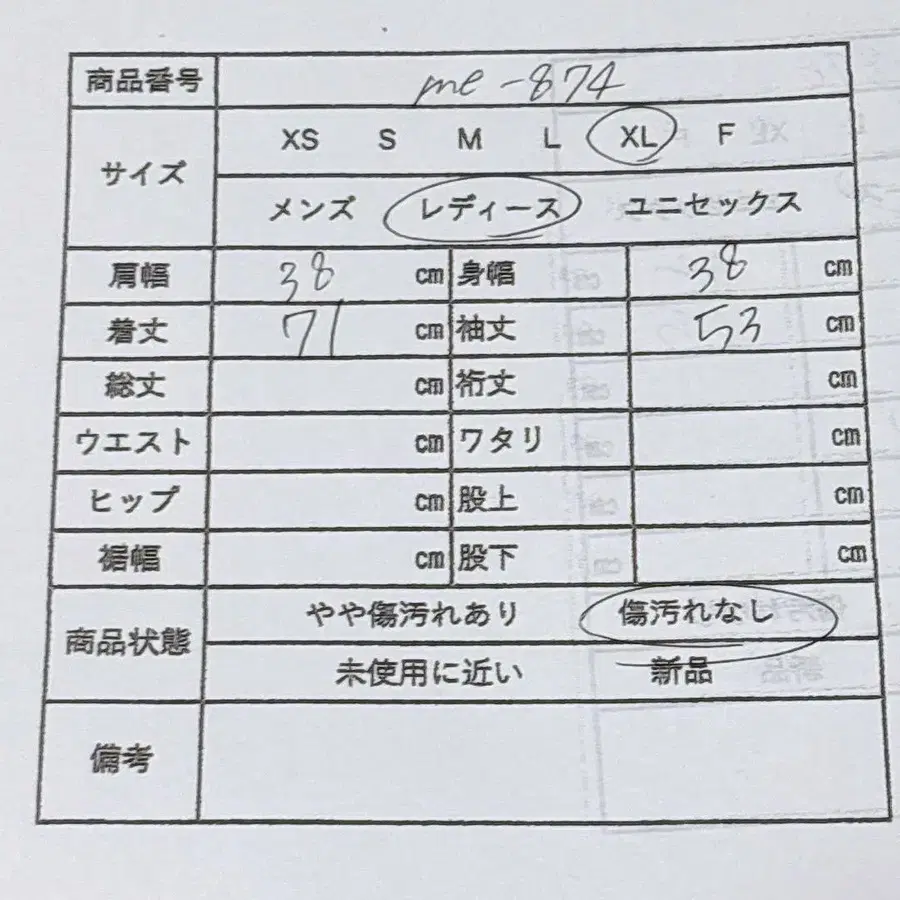 商品番号 me-874
サイズ XS S M L XL F
メンズ レディース ユニセックス
肩幅 38 cm 身幅 38 cm
着丈 71 cm 袖丈 53 cm
総丈 cm 裄丈 cm
ウエスト cm ワタリ cm
ヒップ cm 股上 cm
裾幅 cm 股下 cm
商品状態 やや傷汚れあり 傷汚れなし
未使用に近い 新品
備考